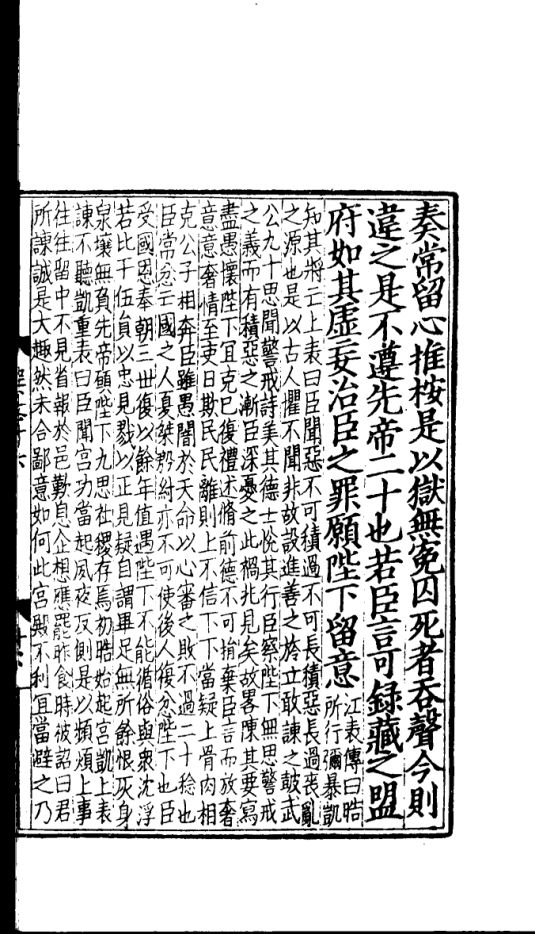 奏常留心推桉是以獄無寃囚死者吞聲今則
違之是不遵先帝二十也若臣言可錄藏之盟
府如其虛妄治臣之罪願陛下留意
江表傳曰晧
所行彌暴凱
知其將亡上表曰臣聞惡不可積過不可長積惡長過喪亂
之源也是以古人懼不聞非故設進善之旍立敢諫之鼓武
公九十思聞警戒詩美其德士悅其行臣察陛下無思警戒
之義而有積惡之漸臣深憂之此禍兆見矣故畧陳其要寫
盡愚懷陛下宜克己復禮述脩前德不可捐棄臣言而放奢
意意奢情至吏日欺民民離則上不信下下當疑上骨肉相
克公子相奔臣雖愚闇於天命以心審之敗不過二十稔也
臣常忿亡國之人夏桀殷紂亦不可使後人復忿陛下也臣
受國恩奉朝三世復以餘年值遇陛下不能循俗與衆沈浮
若比干伍員以忠見戮以正見疑自謂畢足無所餘恨灰身
泉壤無負先帝願陛下九思社稷存焉初晧始起宮凱上表
諫不聽凱重表曰臣聞宮功當起夙夜反側是以頻煩上事
往往留中不見省報於邑歎息企想應罷昨食時被詔曰君
所諫誠是大趣然未合鄙意如何此宮殿不利宜當避之乃